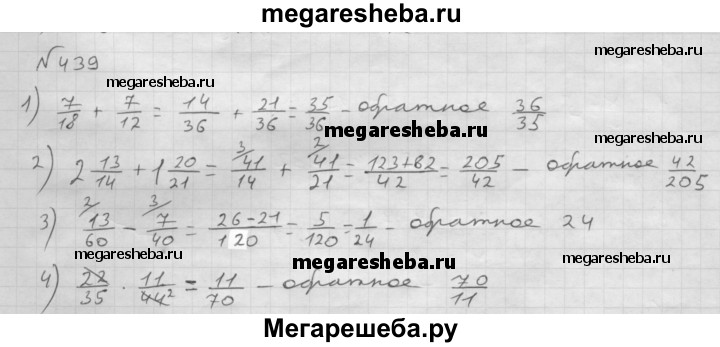 megaresheba.ru
megaresheba.ru
№439
megaresheba.ru
1) 7/18 + 7/12 = 14/36 + 21/36 = 35/36 - обратное 36/35
megaresheba.ru
megaresheba.ru
2) 2 13/14 + 1 20/21 = 3/ 41/14 + 2/ 41/21 = 123+82/42 = 205/42 - обратное 42/205
3) 2/ 13/60 - 3/ 7/40 = 26-21/120 = 5/120 = 1/24 - обратное 24
megaresheba.ru
megaresheba.ru
4) 22/35 · 11/44 2 = 11/70 - обратное 70/11
megaresheba.ru
Мегарешеба.ру